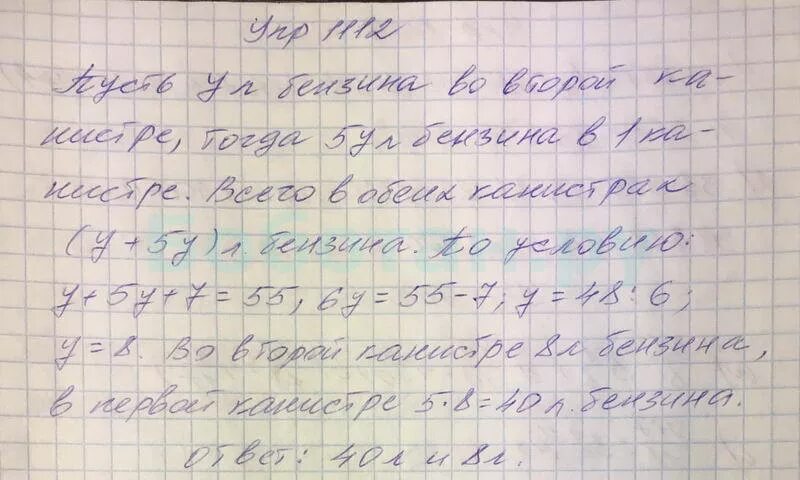 Упр 1112
Пусть у л бензина во второй ка-
нистре, тогда 5у л бензина в 1 ка-
нистре. Всего в обеих канистрах
(у + 5у) л бензина. По условию:
у + 5у + 7 = 55, 6у = 55 - 7; у = 48 : 6;
у = 8. Во второй канистре 8л бензина,
в первой канистре 5·8=40 л. бензина.
Ответ: 40л и 8л.